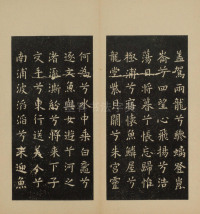 蓋駕兩龍兮驂螭登崑
崙兮四望心飛揚兮浩
蕩日將暮兮悵忘歸惟
極浦兮寤懷魚鱗屋兮
龍堂紫貝闕兮朱宮靈
何為兮水中乘白黿兮
逐文魚與女遊兮河之
渚流澌紛兮將來下子
交手兮東行送美人兮
南浦波滔滔兮來迎魚